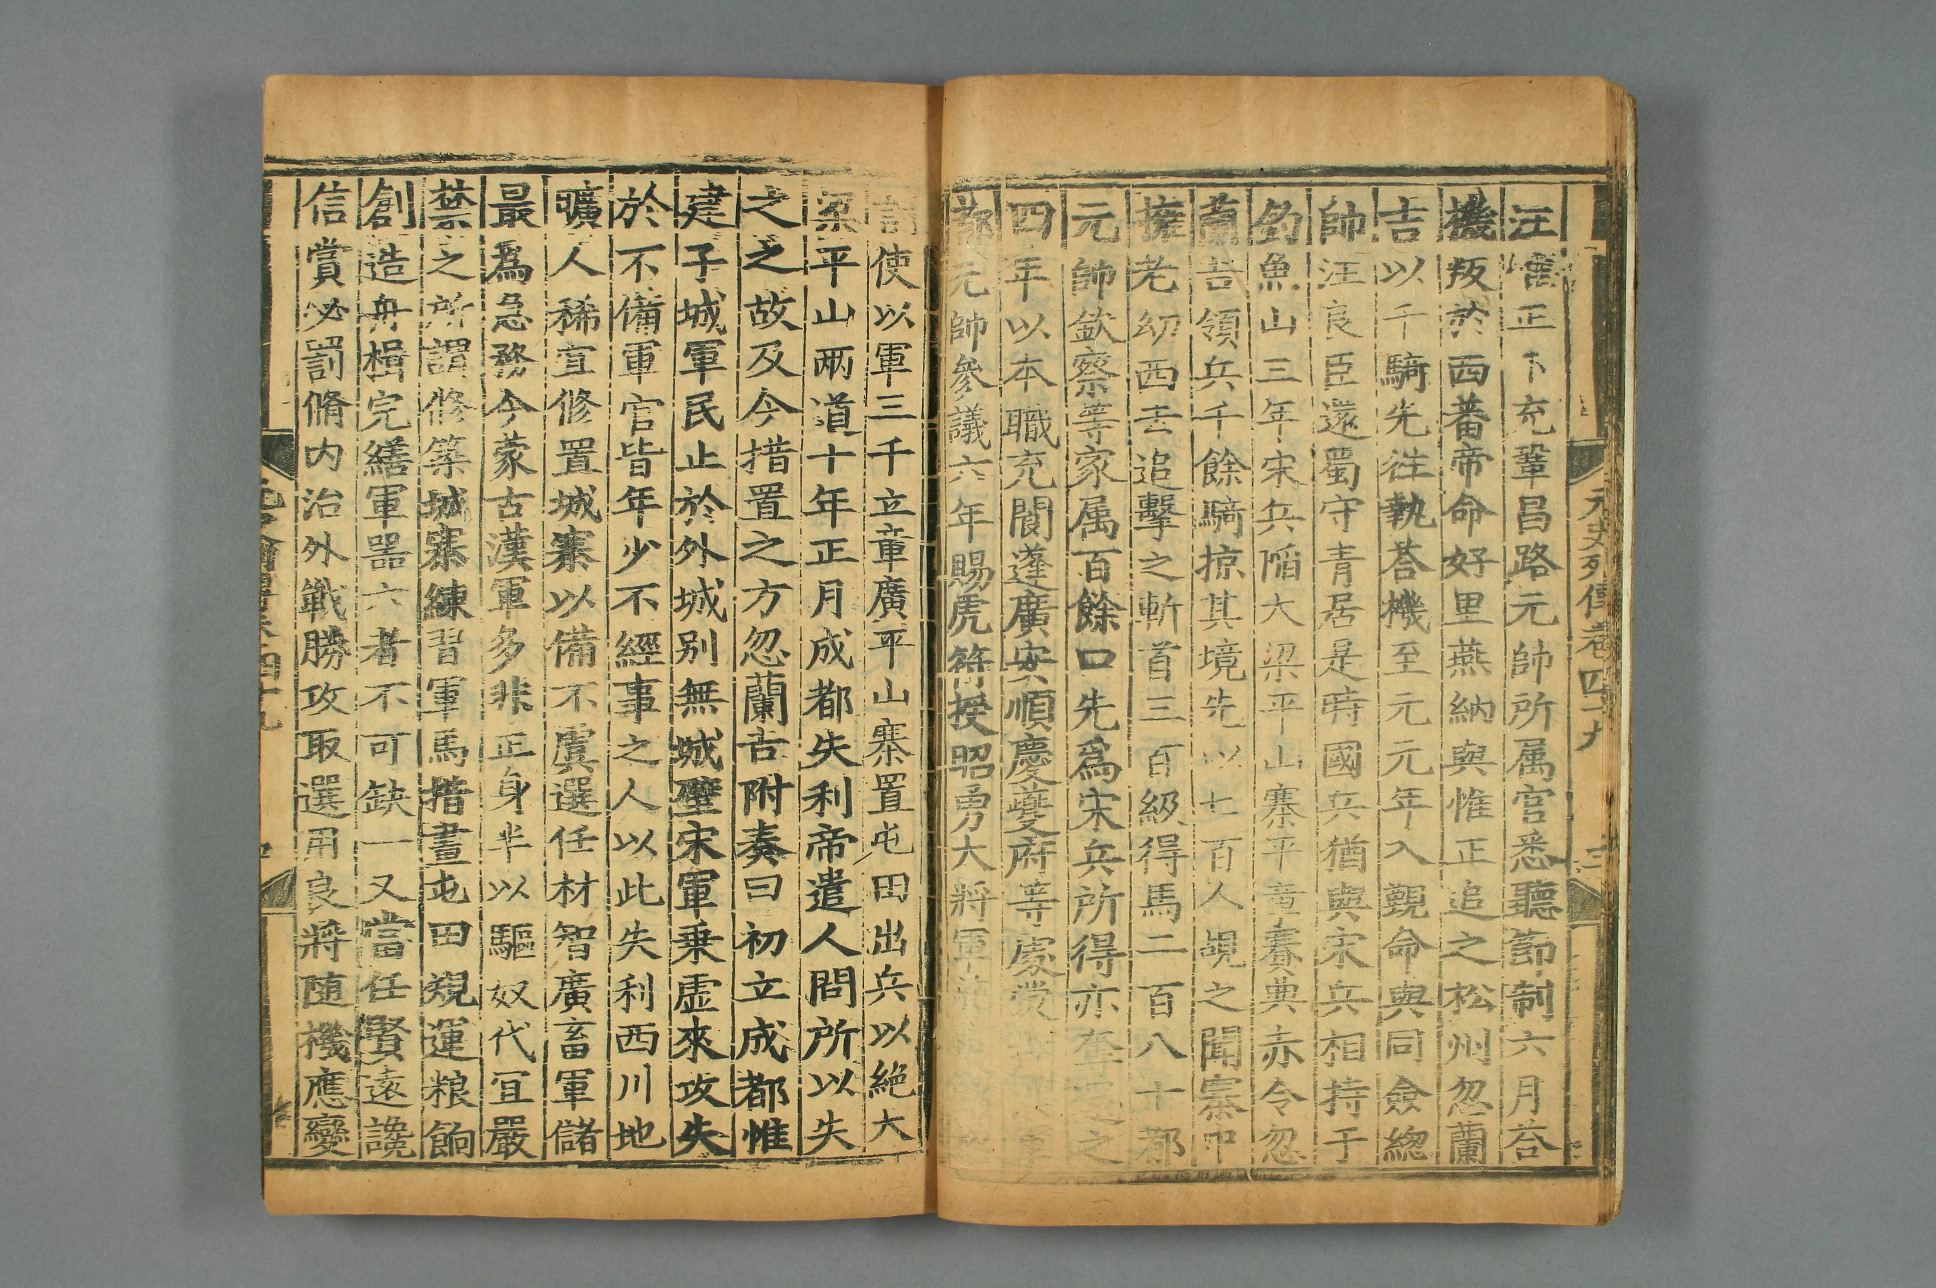 元史列傳卷四十九
汪惟正下充鞏昌路元帥所属官悉聽節制六月荅
機叛於西蕃帝命好里燕納與惟正追之松州忽蘭
吉以千騎先徃執荅機至元元年入覲命與同僉緫
帥汪良臣還蜀守青居是時國兵猶與宋兵相持于
釣魚山三年宋兵陷大梁平山寨平章賽典赤令忽
蘭吉領兵千餘騎掠其境先以七百人覘之聞寨中
擁老幼西去追擊之斬首三百級得馬二百八十都
元帥欽察等家属百餘口先爲宋兵所得亦奪還之
四年以本職充閬蓬廣安順慶夔府等處蒙
都元帥參議六年賜虎符授昭勇大將軍
討使以軍三千立章廣平山寨置屯田出兵以絶大
梁平山兩道十年正月成都失利帝遣人問所以失
之之故及今措置之方忽蘭吉附奏曰初立成都惟
建子城軍民止於外城别無城壁宋軍乗虚來攻失
於不備軍官皆年少不經事之人以此失利西川地
曠人稀宜修置城寨以備不虞選任材智廣畜軍儲
最爲急務今蒙古漢軍多非正身半以驅奴代宜嚴
禁之所謂修築城寨練習軍馬措畫屯田規運粮餉
創造舟楫完繕軍器六者不可缺一又當任賢遠讒
信賞必罰脩内治外戰勝攻取選用良將随機應變